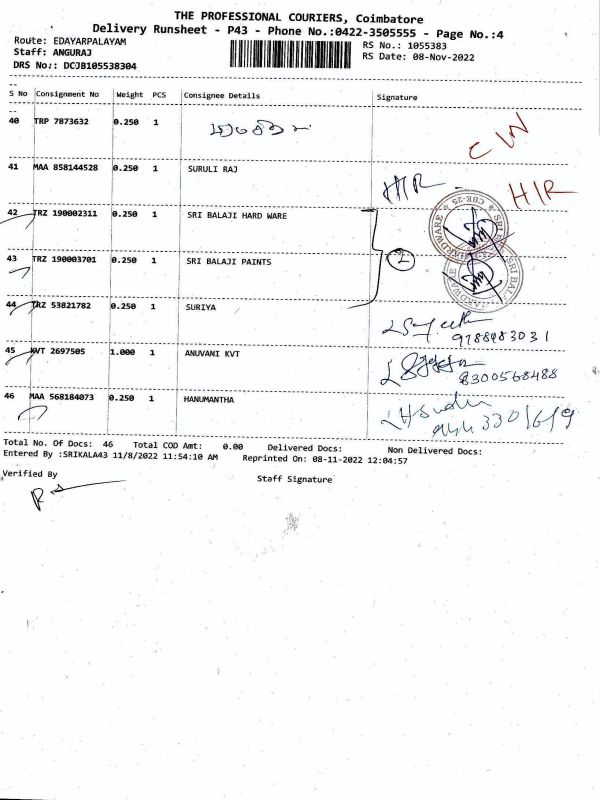 THE PROFESSIONAL COURIERS, Coimbatore
Delivery Runsheet - P43 - Phone No.:0422-3505555 - Page No.:4
Route: EDAYARPALAYAM
RS No.: 1055383
Staff: ANGURAJ
RS Date: 08-Nov-2022
DRS No:: DCJB105538304
S No Consignment No Weight PCS Consignee Details Signature
40 TRP 7873632 0.250 1
C/N
41 MAA 858144528 0.250 1 SURULI RAJ
H/R H/R
42 TRZ 190002311 0.250 1 SRI BALAJI HARD WARE
43 TRZ 190003701 0.250 1 SRI BALAJI PAINTS
2
44 TRZ 53821782 0.250 1 SURIYA
9788483031
45 KVT 2697505 1.000 1 ANUVANI KVT
8300568488
46 MAA 568184073 0.250 1 HANUMANTHA
Total No. Of Docs: 46 Total COD Amt: 0.00 Delivered Docs: Non Delivered Docs:
Entered By :SRIKALA43 11/8/2022 11:54:10 AM Reprinted On: 08-11-2022 12:04:57
Verified By
Staff Signature